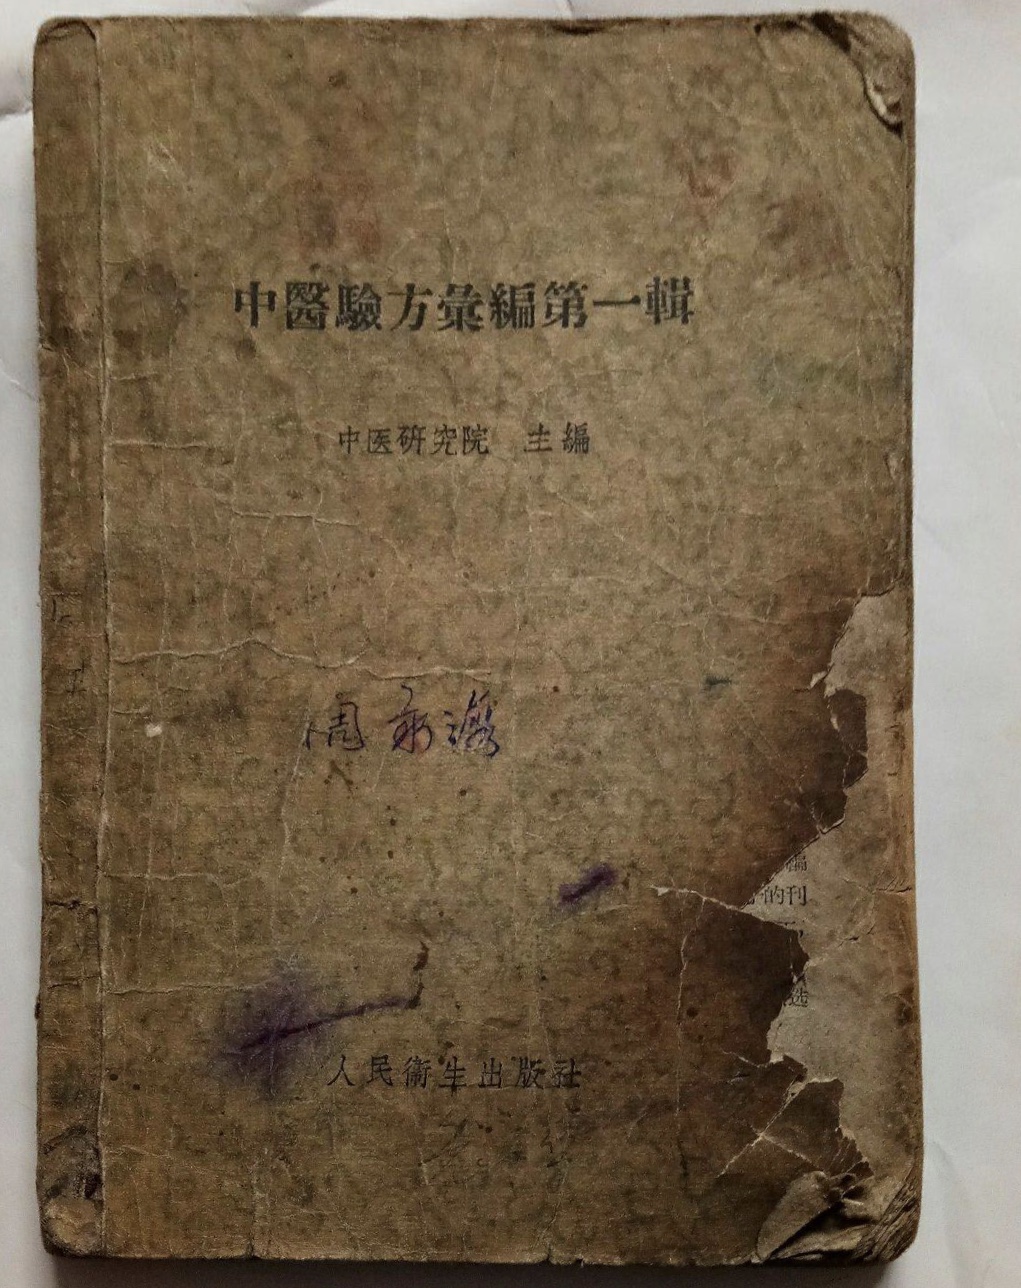 中醫驗方彙編第一輯
中医研究院 主編
周
編
的刊
选
人民衞生出版社